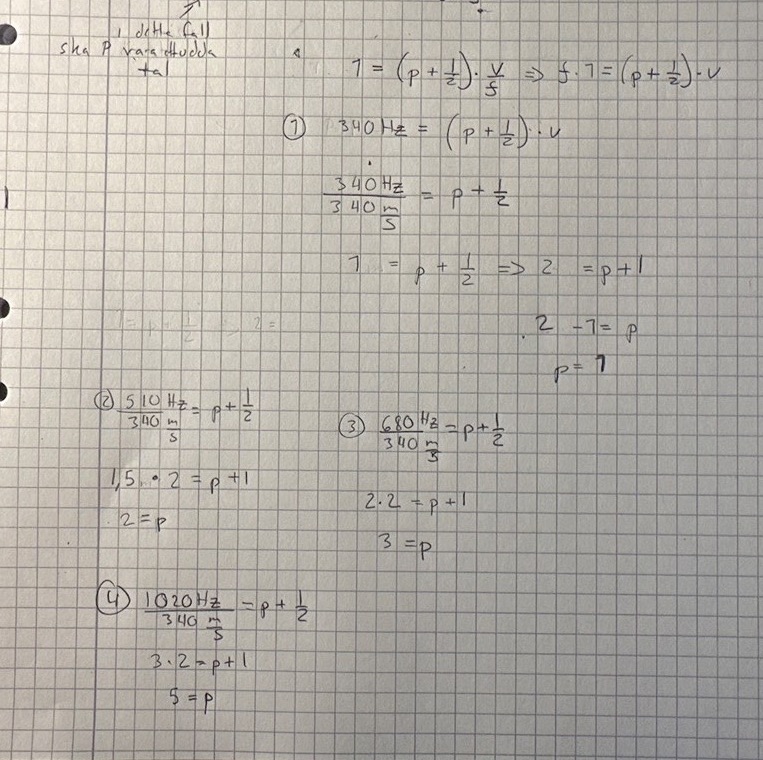 i detta fall
ska P vara udda
tal
1 = (p + 1/2) · v/f => f · 1 = (p + 1/2) · v
① 340 Hz = (p + 1/2) · v
340 Hz / 340 m/s = p + 1/2
1 = p + 1/2 => 2 = p + 1
2 - 1 = p
p = 1
② 510 Hz / 340 m/s = p + 1/2
1,5 · 2 = p + 1
2 = p
③ 680 Hz / 340 m/s = p + 1/2
2 · 2 = p + 1
3 = p
④ 1020 Hz / 340 m/s = p + 1/2
3 · 2 = p + 1
5 = p